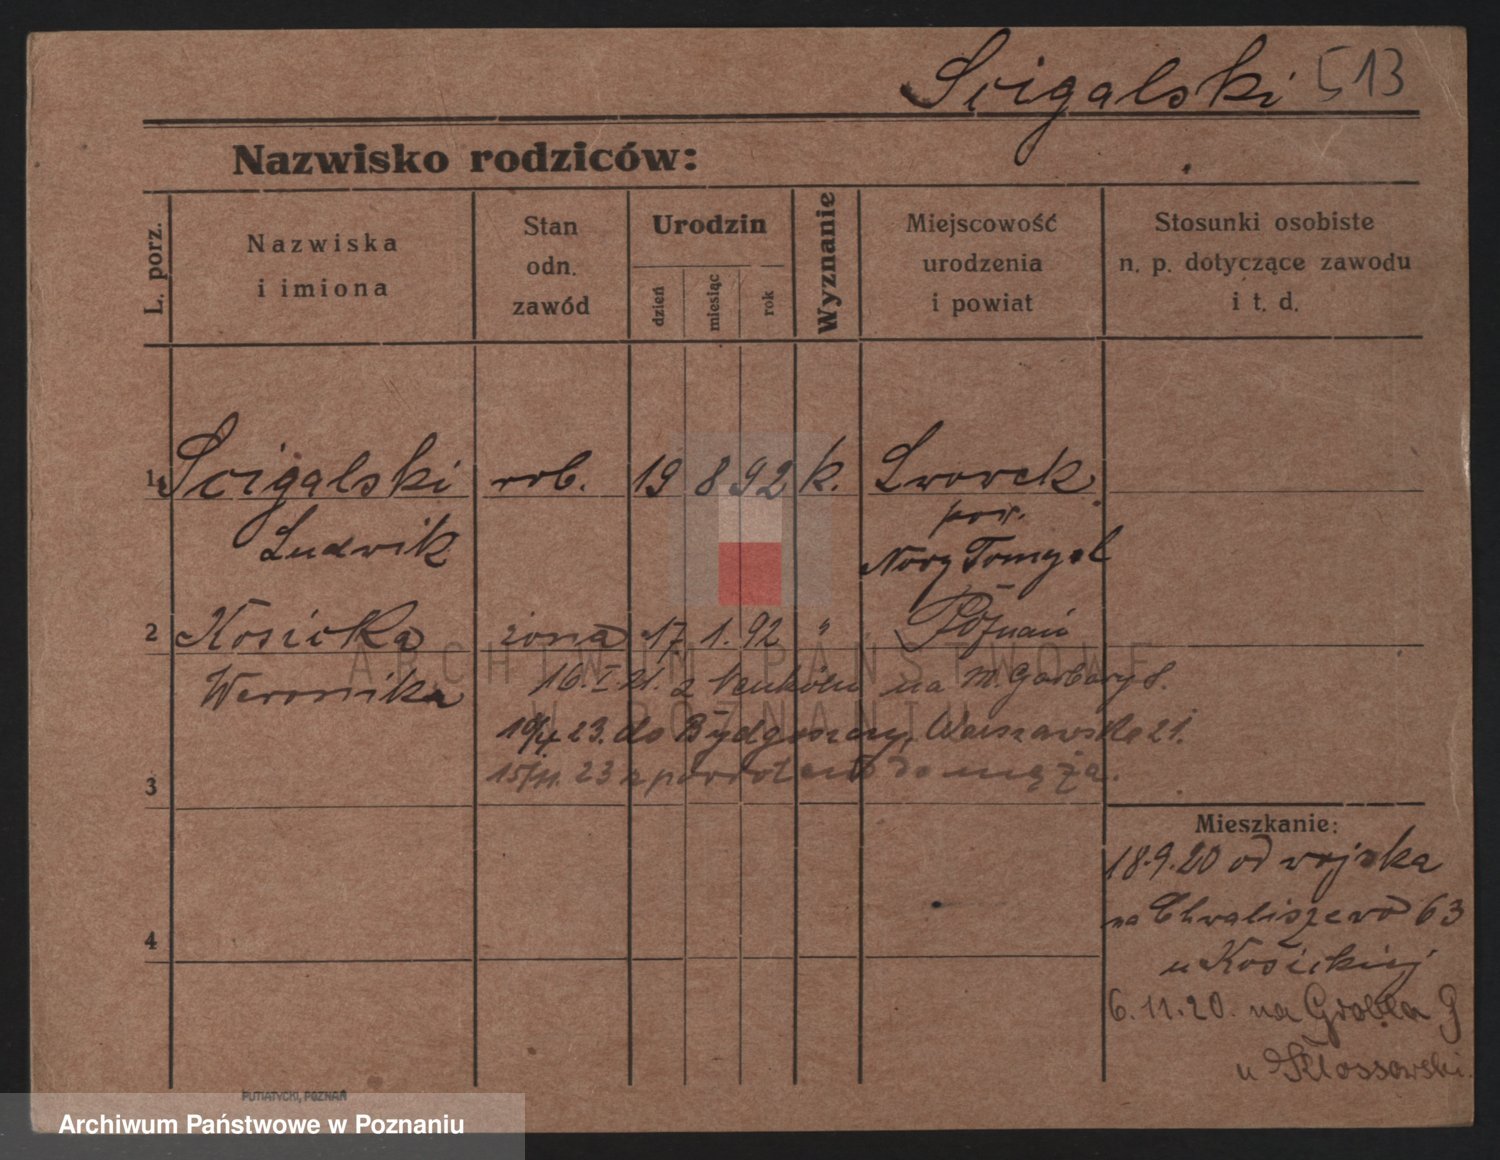 Scigalski 513
Nazwisko rodziców:
L. porz.
Nazwiska
i imiona
Stan
odn.
zawód
Urodzin
dzień
miesiąc
rok
Wyznanie
Miejscowość
urodzenia
i powiat
Stosunki osobiste
n. p. dotyczące zawodu
i t. d.
1 Scigalski rob. 19 8 92 k. Lwowek
pow.
Ludwik Nowy Tomysl
2 Kosicka żona 17 1. 92 " Poznań
ARCHIWUM PAŃSTWOWE
Weronika 16. I. 21. z na M. Garbary 8.
W POZNANIU
23. do Bydgoszczy, Warszawska 21.
3 15/11. 23 z powrotem do męża.
Mieszkanie:
18.9.20 od wojska
na Chwaliszewo 63
4
u Kosickiej
6.11.20. na Grobla 9
u Kłossowski.
PUTIATYCKI, POZNAŃ
Archiwum Państwowe w Poznaniu